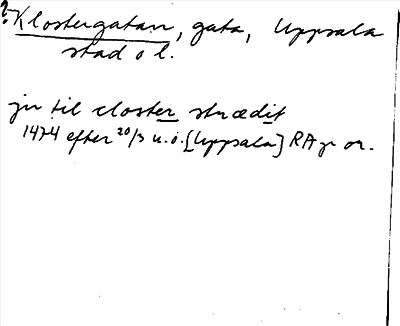 ?Klostergatan, gata, Uppsala
stad o l.
jn til closter strædit
1474 efter 20/3 u.o. [Uppsala] RAp or.